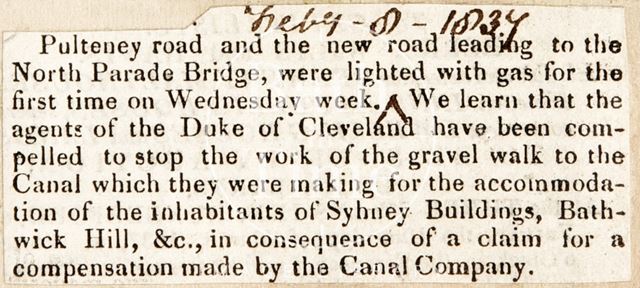 Feby - 8 - 1837
Pulteney road and the new road leading to the
North Parade Bridge, were lighted with gas for the
first time on Wednesday week. We learn that the
agents of the Duke of Cleveland have been com-
pelled to stop the work of the gravel walk to the
Canal which they were making for the accommoda-
tion of the inhabitants of Syhney Buildings, Bath-
wick Hill, &c., in consequence of a claim for a
compensation made by the Canal Company.